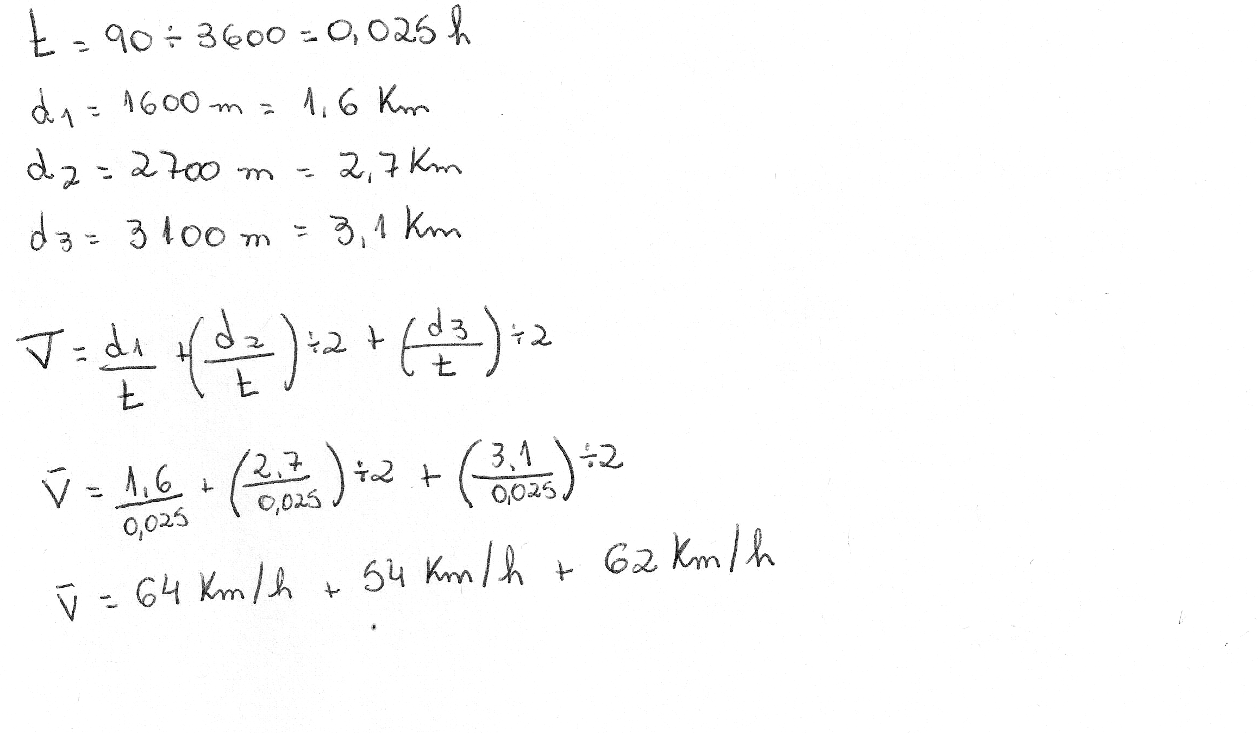 t = 90 ÷ 3600 = 0,025 h
d1 = 1600 m = 1,6 Km
d2 = 2700 m = 2,7 Km
d3 = 3100 m = 3,1 Km
V̄ = d1/t + (d2/t) ÷2 + (d3/t) ÷2
V̄ = 1,6/0,025 + (2,7/0,025) ÷2 + (3,1/0,025) ÷2
V̄ = 64 Km/h + 54 Km/h + 62 Km/h